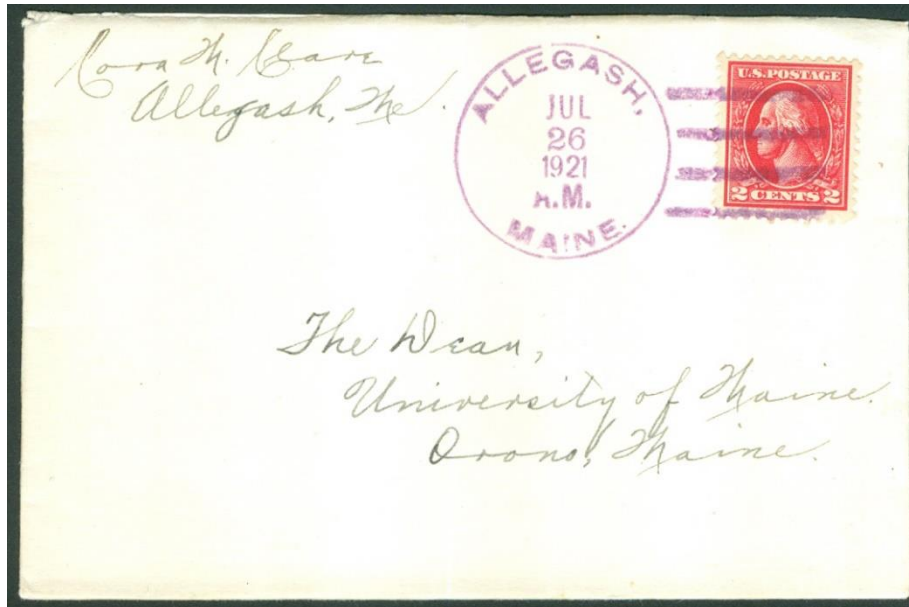 Cora M.
Allegash, Me.
ALLEGASH,
JUL
26
1921
A.M.
MAINE.
U.S. POSTAGE
2 CENTS 2
The Dean,
University of Maine.
Orono, Maine.